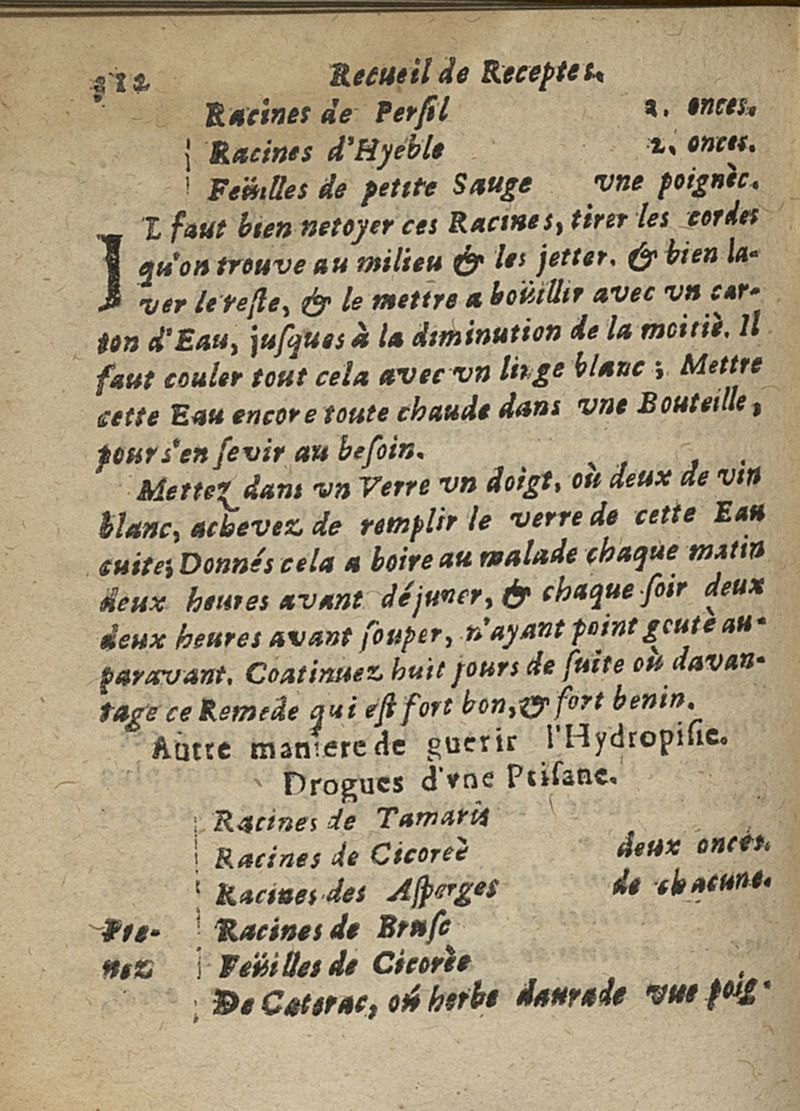 312 Recueil de Receptes.
Racines de Perſil 2. onces.
Racines d'Hyeble 2. onces.
Feüilles de petite Sauge vne poignèe.
IL faut bien netoyer ces Racines, tirer les cordes
qu'on trouve au milieu & les jetter. & bien la-
ver le reſte, & le mettre a boüillir avec vn car-
ton d'Eau, juſques à la diminution de la moitiè. Il
faut couler tout cela avec vn linge blanc ; Mettre
cette Eau encore toute chaude dans vne Bouteille,
pour s'en ſevir au beſoin.
Mettez dans vn Verre vn doigt, où deux de vin
blanc, achevez de remplir le verre de cette Eau
cuite; Donnés cela a boire au malade chaque matin
deux heures avant déjuner, & chaque ſoir deux
deux heures avant ſouper, n'ayant point goutè au-
paravant. Coatinuez huit jours de ſuite où davan-
tage ce Remede qui eſt fort bon, & fort benin.
Autre maniere de guerir l'Hydropiſie.
Drogues d'vne Ptiſane.
Racines de Tamaris
Racines de Cicoreè deux onces.
Racines des Aſperges de chacune.
Pre- Racines de Bruſc
nez Feüilles de Cicorèe
De Caterac, oú herbe daurade vue poig-